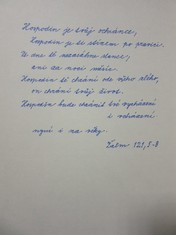 Hospodin je tvůj ochránce,
Hospodin je ti stínem po pravici.
Ve dne tě nezasáhne slunce,
ani za noci měsíc.
Hospodin tě chrání ode všeho zlého,
on chrání tvůj život.
Hospodin bude chránit tvé vycházení
i vcházení
nyní i na věky.
Žalm 121, 5-8